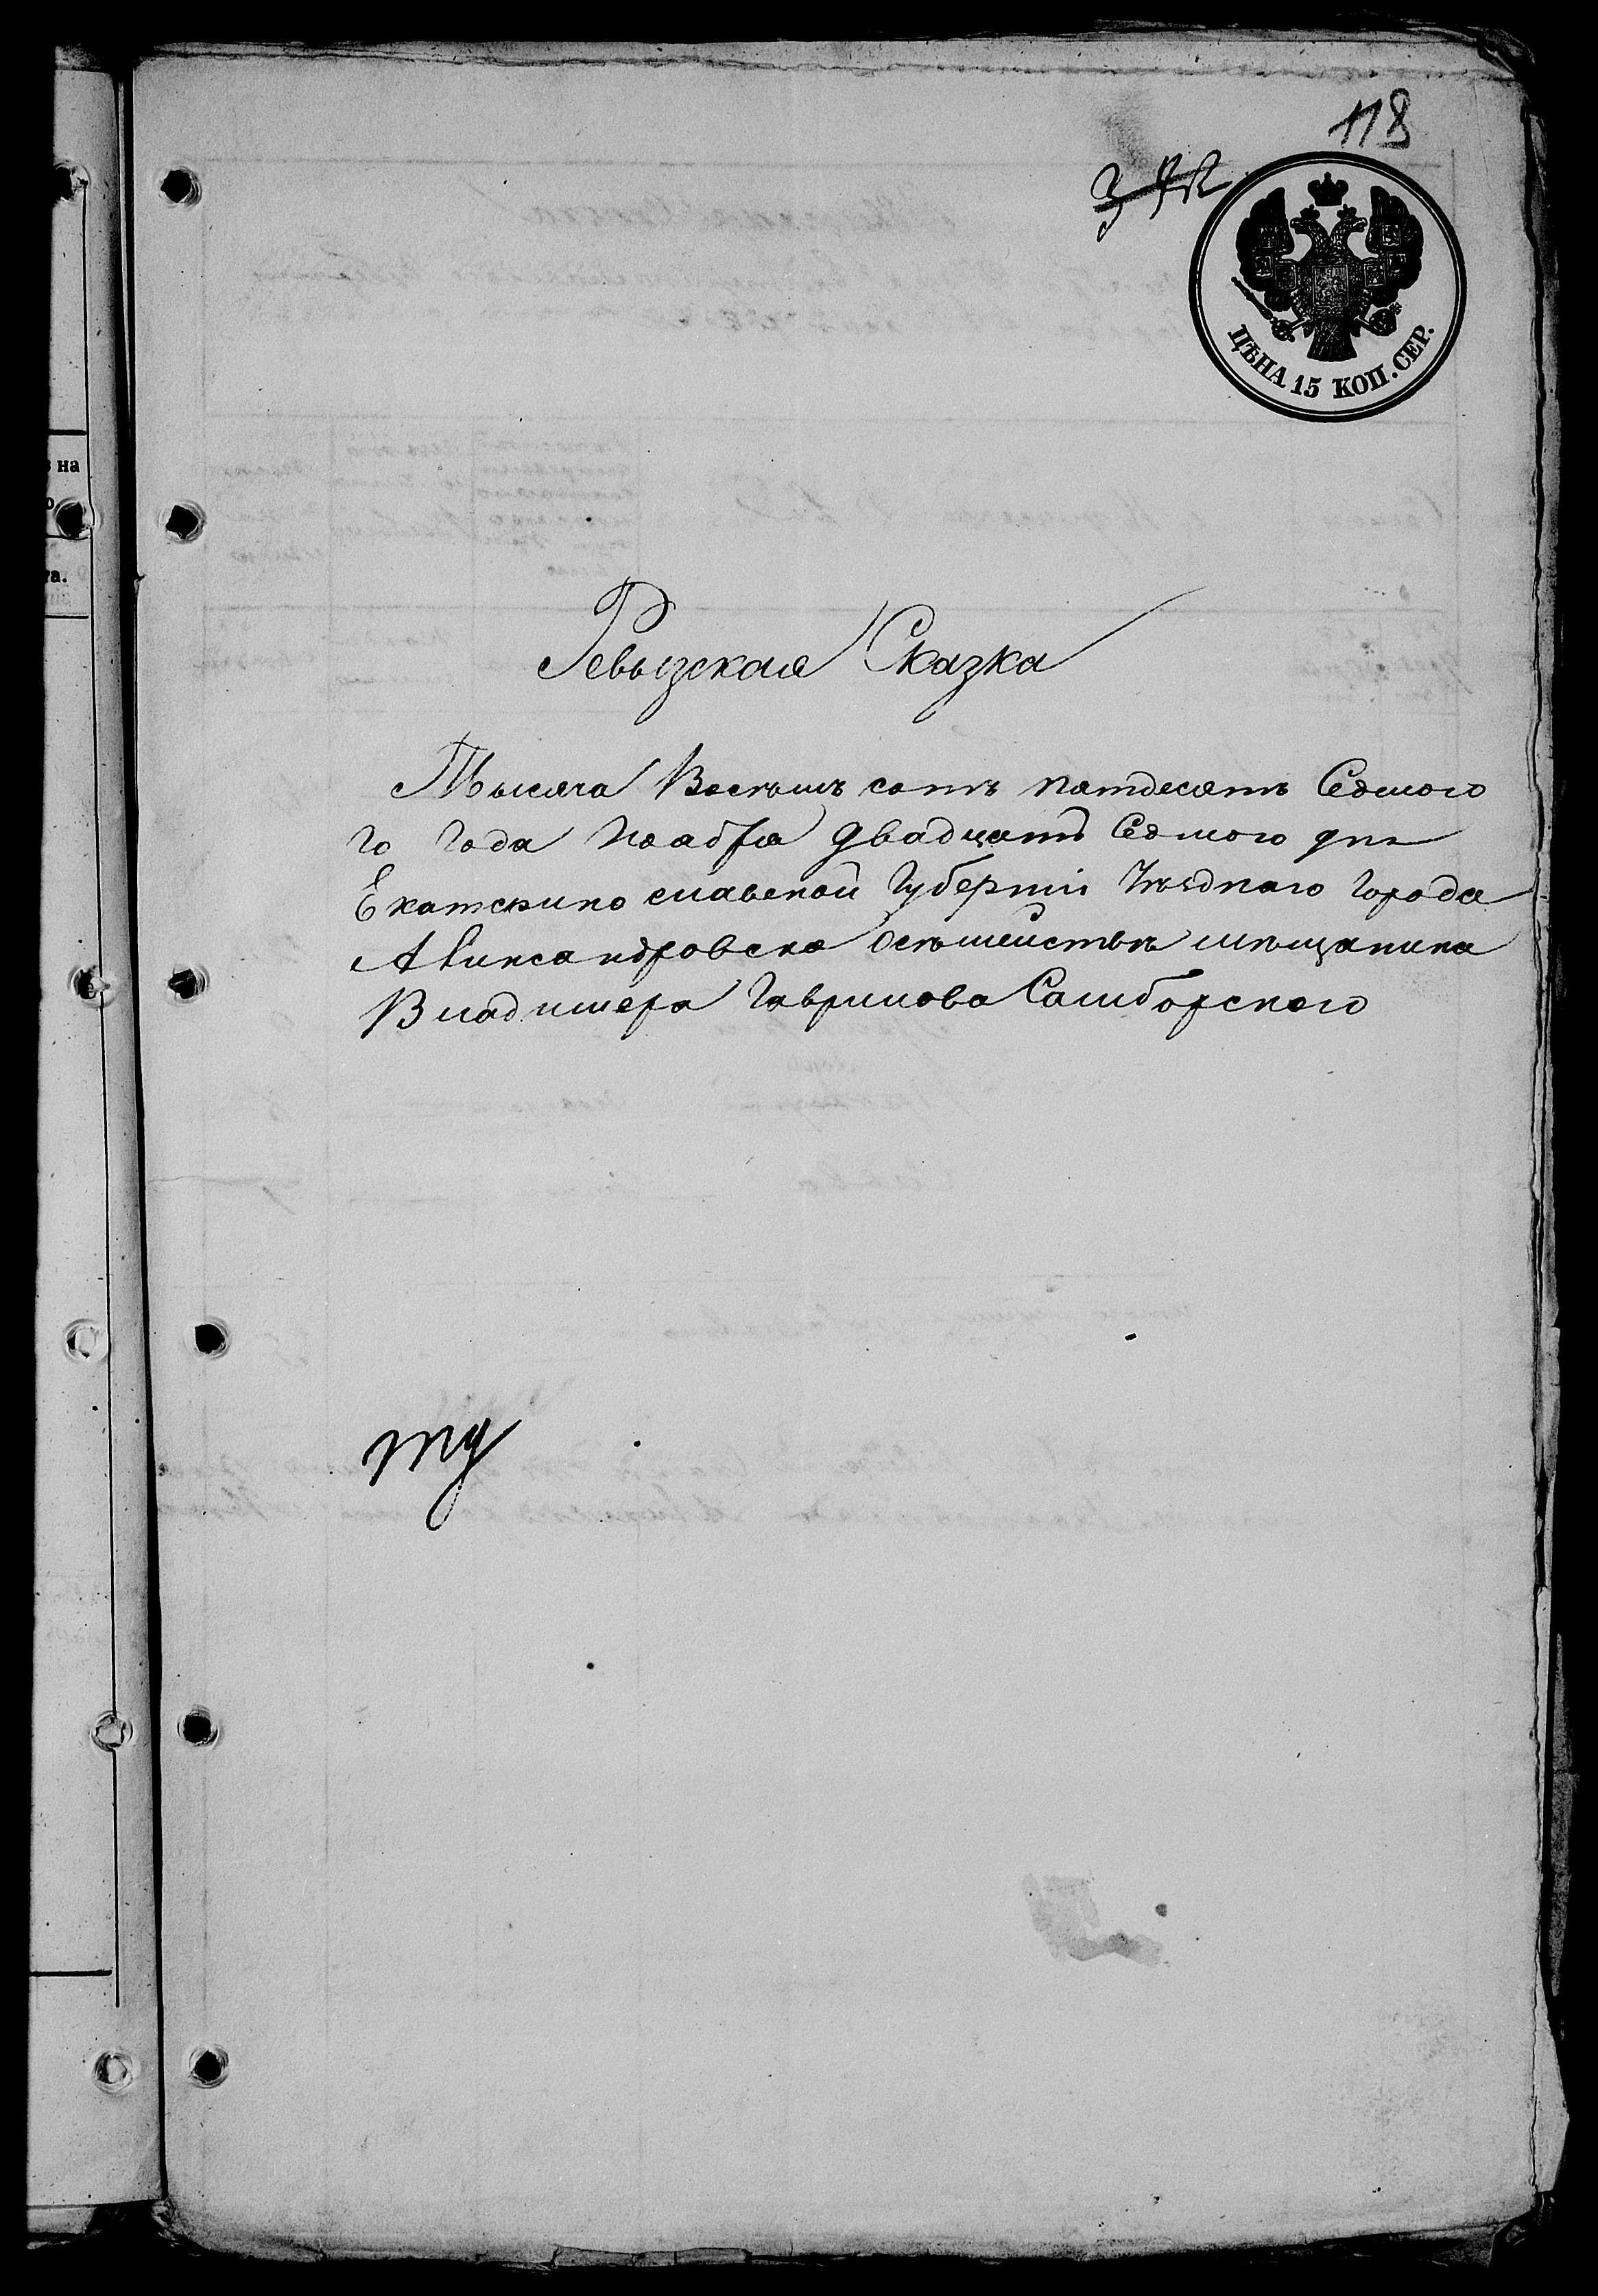 118
ЦѢНА 15 КОП. СЕР.
на
а.
Ревызская Сказка
Тысяча Восѣмъ сотъ пятдесятъ Седмого
го Года Ноабря двадцатъ Седмого дня
Екатерино славской Губерніи Уѣзднаго Города
Аликсандровска Осѣмействѣ мѣщанина
Владимера Гаврилова Самборского